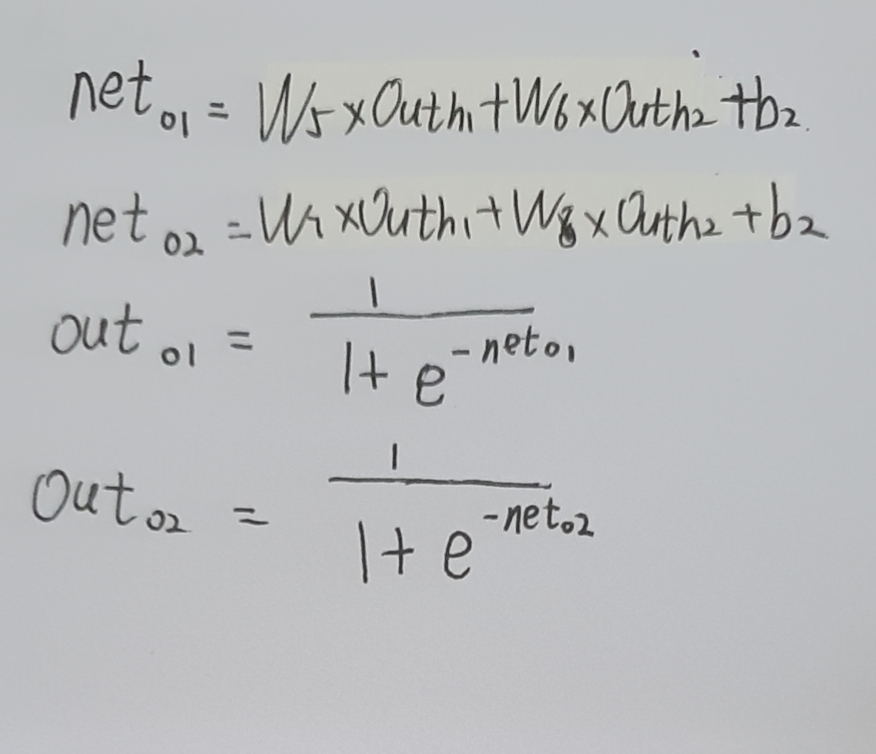 net₀₁ = W₅ × Outh₁ + W₆ × Outh₂ + b₂
net₀₂ = W₇ × Outh₁ + W₈ × Outh₂ + b₂
out₀₁ = 1 / (1 + e^(-net₀₁))
Out₀₂ = 1 / (1 + e^(-net₀₂))